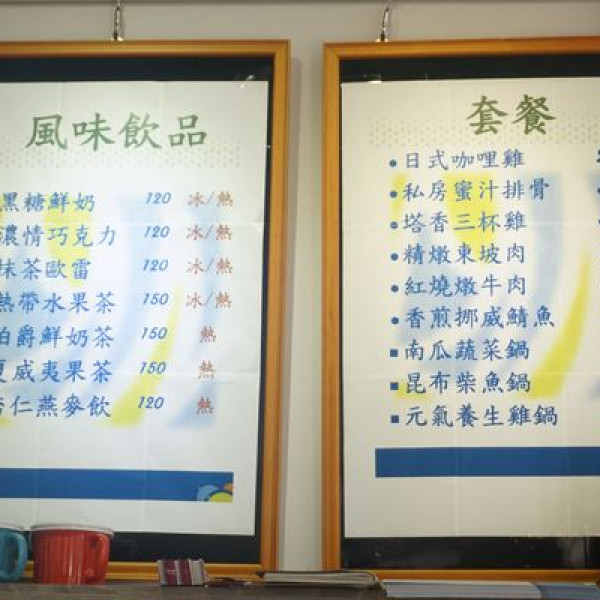 風味飲品
黑糖鮮奶 120 冰/熱
濃情巧克力 120 冰/熱
抹茶歐雷 120 冰/熱
熱帶水果茶 150 冰/熱
伯爵鮮奶茶 150 熱
夏威夷果茶 150 熱
杏仁燕麥飲 120 熱
套餐
●日式咖哩雞
●私房蜜汁排骨
●塔香三杯雞
●精燉東坡肉
●紅燒燉牛肉
●香煎挪威鯖魚
■南瓜蔬菜鍋
■昆布柴魚鍋
■元氣養生雞鍋